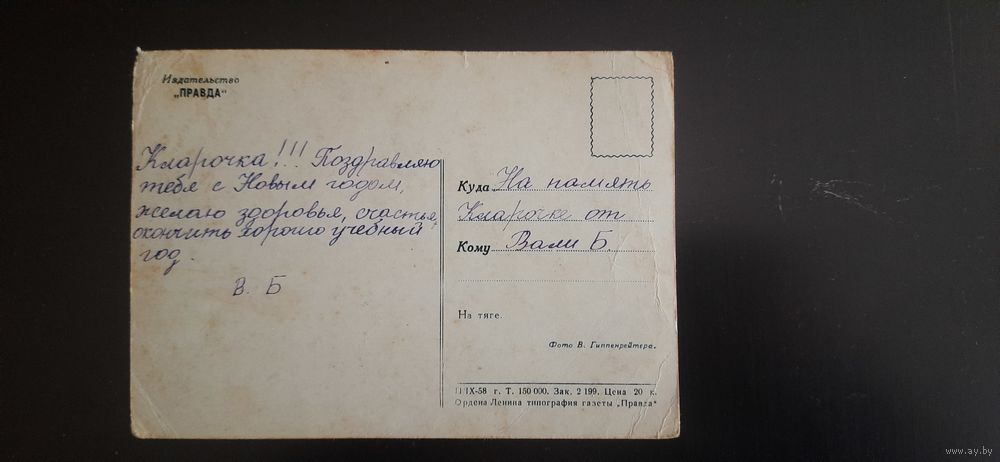 Издательство
„ПРАВДА“
Кларочка!!! Поздравляю
тебя с Новым годом,
желаю здоровья, счастья,
окончить хорошо учебный
год.
В. Б
Куда На память
Кларочке от
Кому Вали Б.
На тяге.
Фото В. Гиппенрейтера.
IX-58 г. Т. 150 000. Зак. 2 199. Цена 20 к.
Ордена Ленина типография газеты „Правда“
www.ay.by